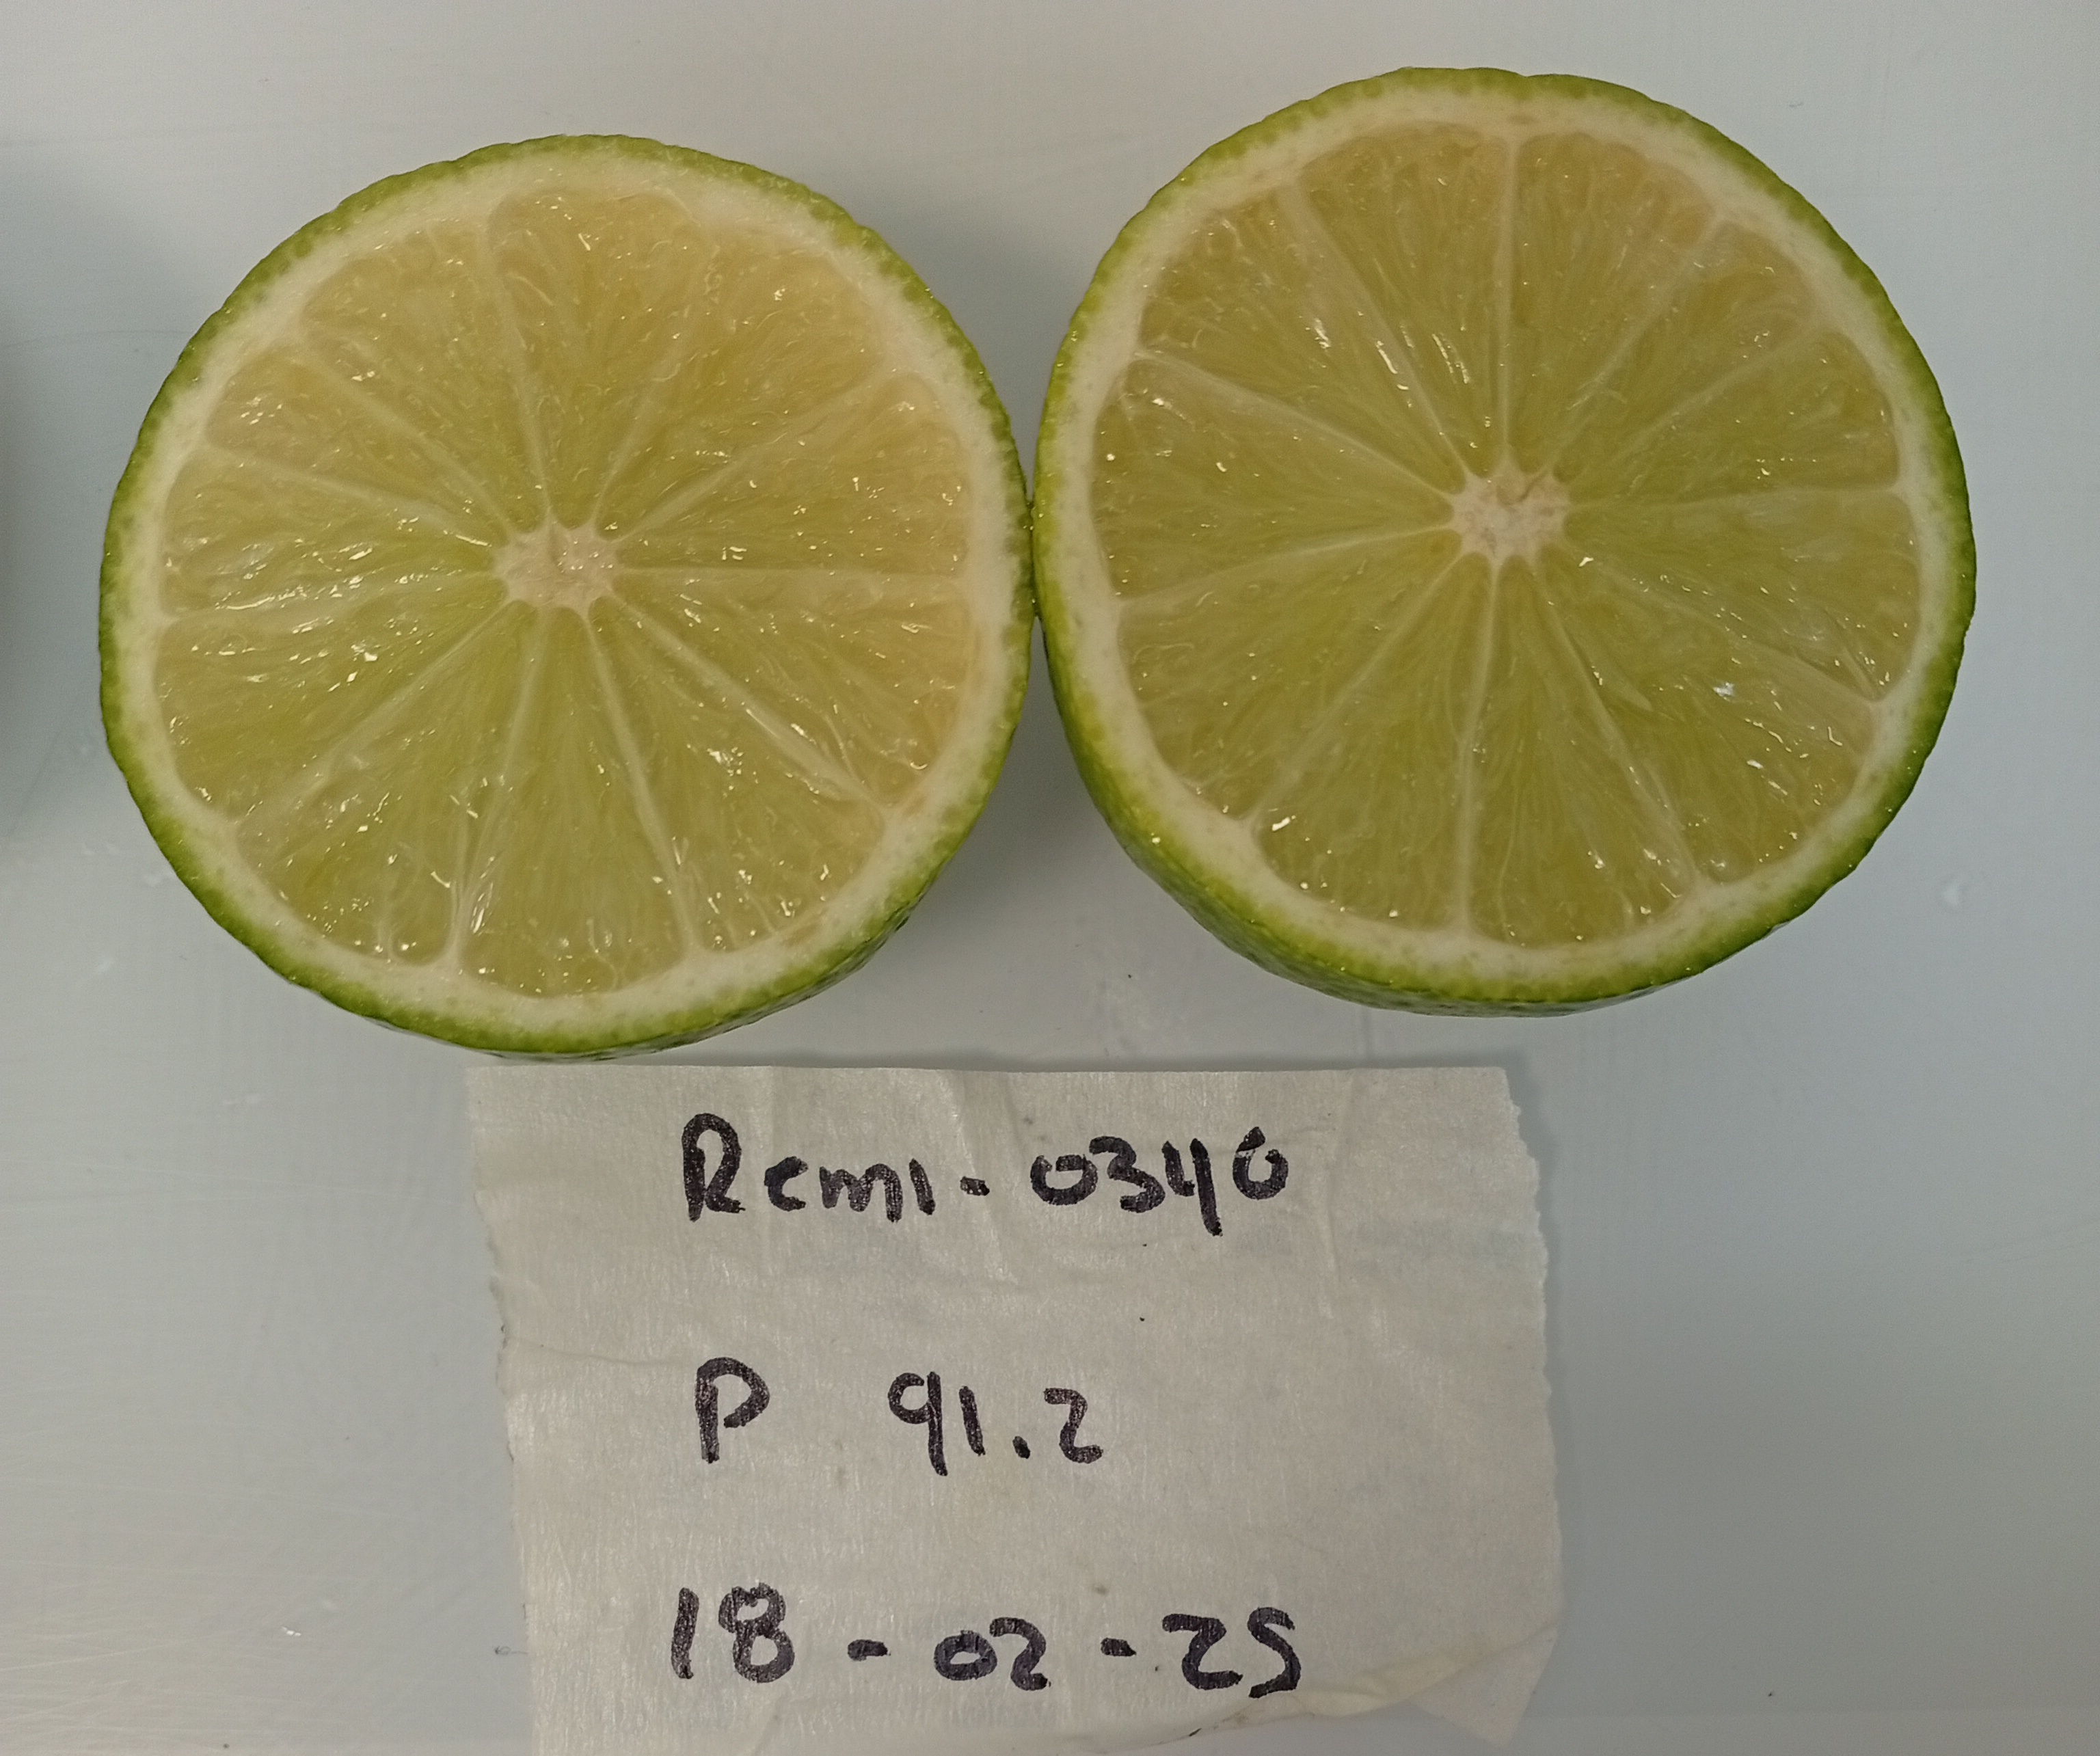 Remi-0340
P 91.2
18-02-25